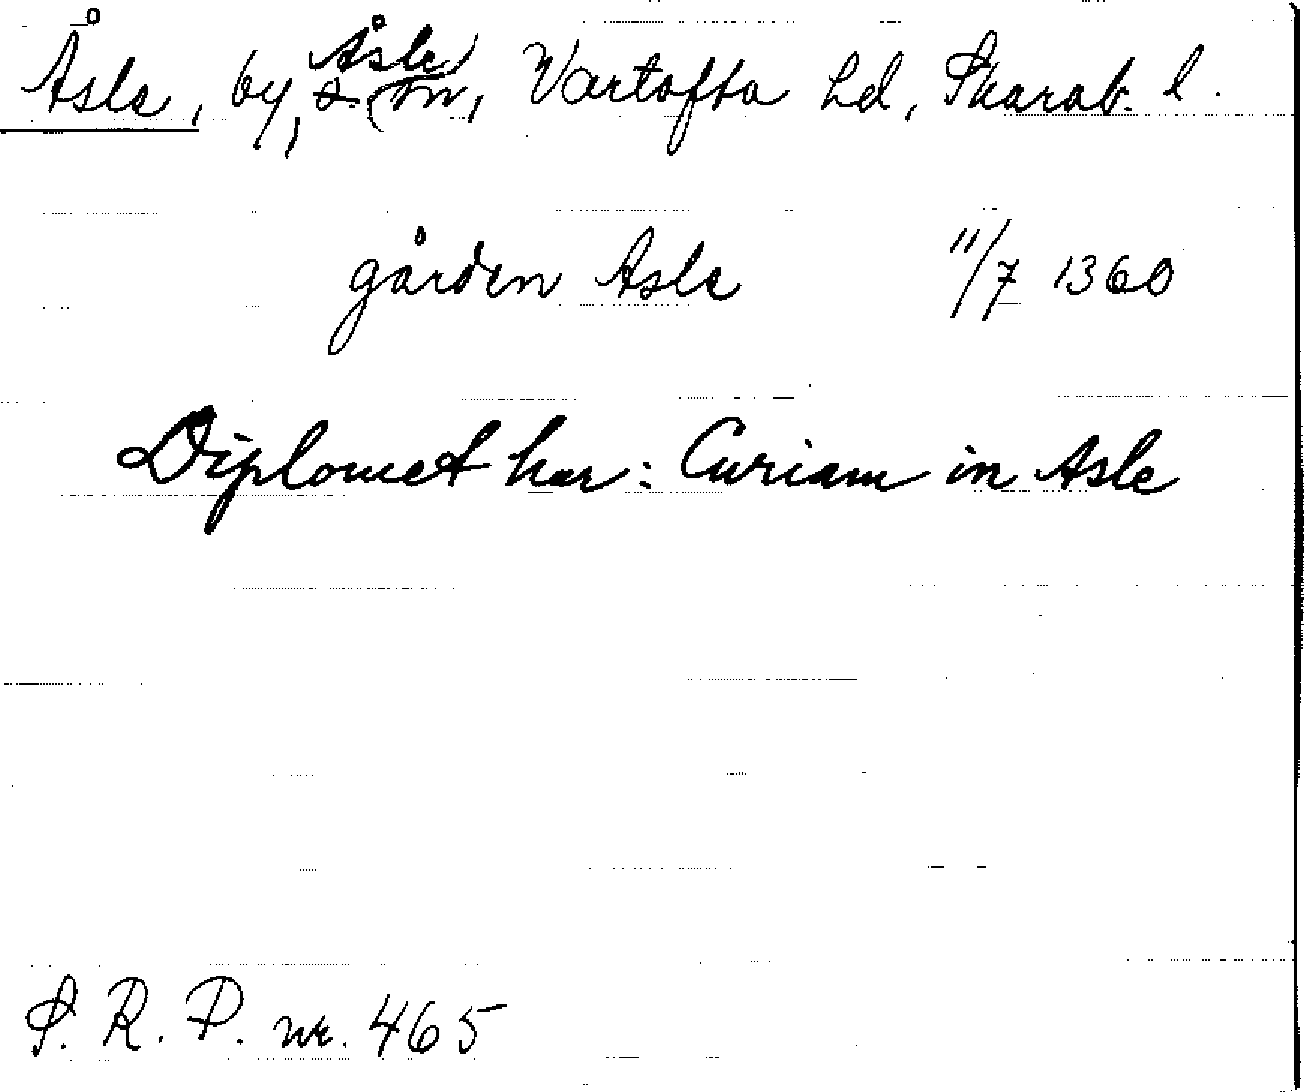 Åsle, by, Åsle, Vartofta hd, Skarab. l.
gården Asle 11/7 1360
Diplomet har: Curiam in Asle
S. R. P. nr. 465